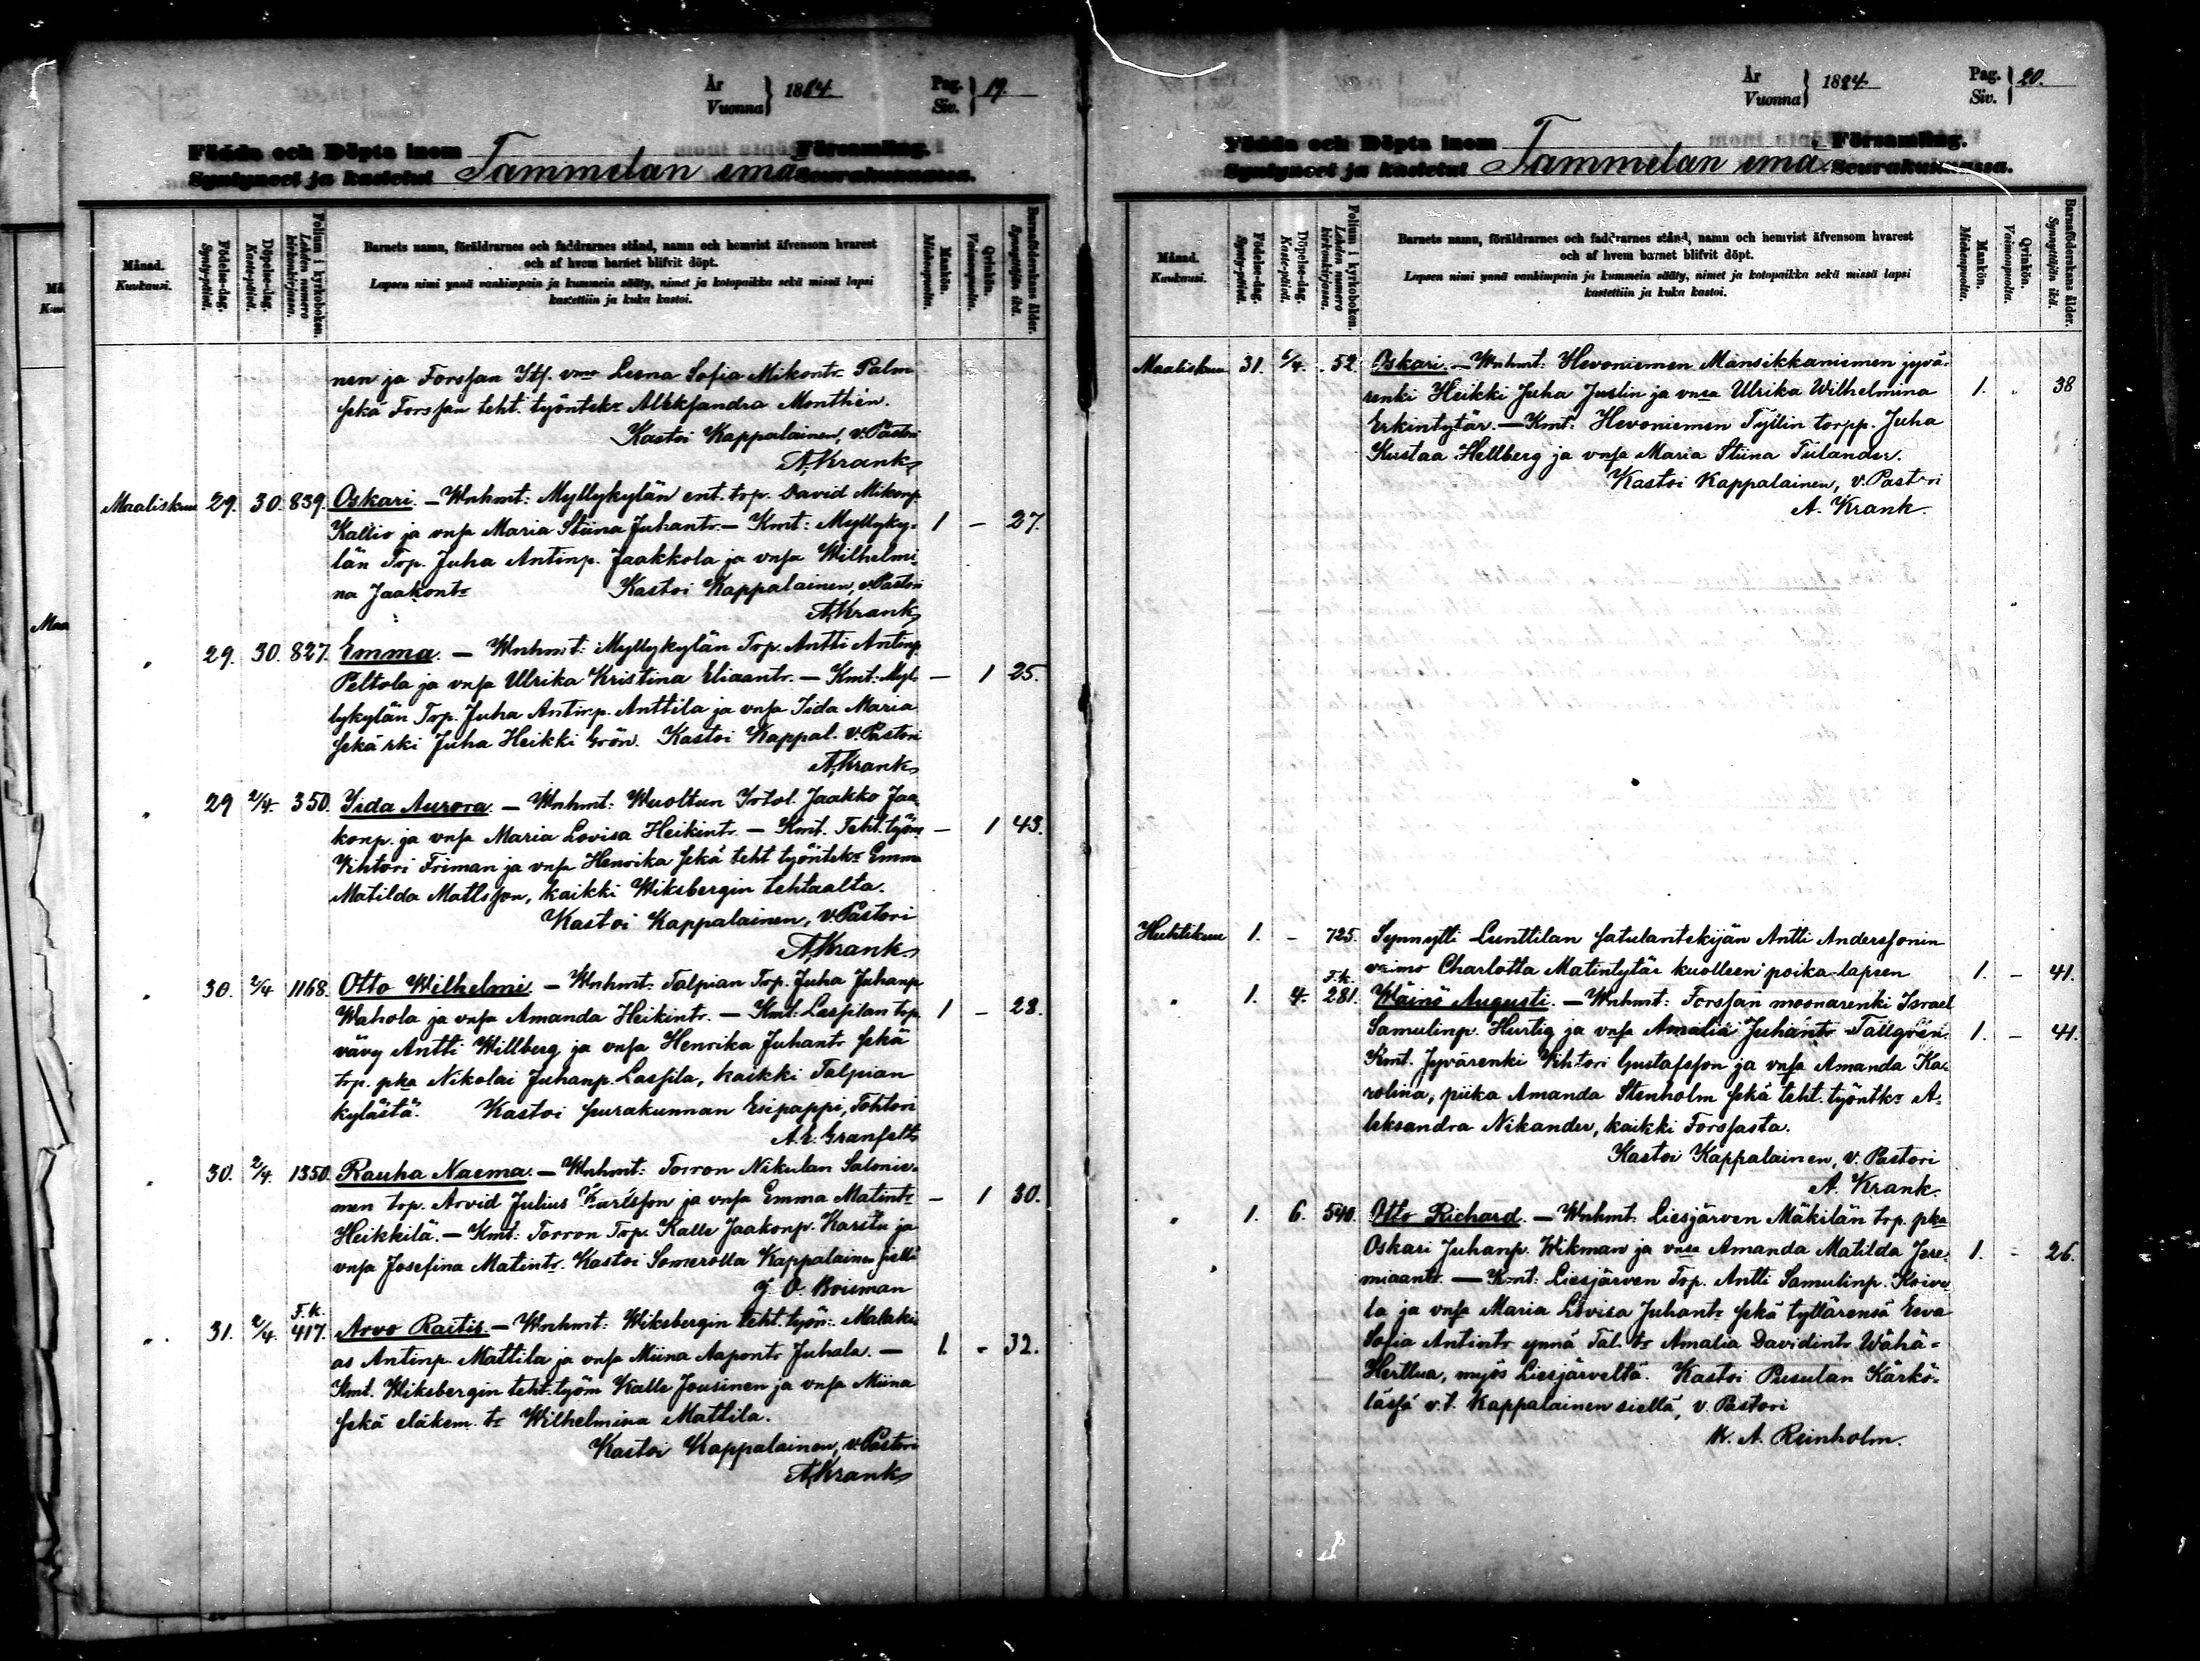 År
Vuonna } 1884.
Pag.
Siv. } 19.
Födda och Döpta inom Församling.
Syntyneet ja kastetut Tammelan emä Seurakunnassa.
Månad.
Kuukausi.
Födelse-dag.
Synty-päivä.
Döpelse-dag.
Kaste-päivä.
Folium i kyrkoboken.
Lehden numero kirkonkirjassa.
Barnets namn, föräldrarnes och faddrarnes stånd, namn och hemvist äfvensom hvarest
och af hvem barnet blifvit döpt.
Lapsen nimi ynnä vanhimpain ja kummein sääty, nimet ja kotopaikka sekä missä lapsi
kastettiin ja kuka kastoi.
Mankön.
Miehenpuolta.
Qvinkön.
Vaimonpuolta.
Barnaföderskans ålder.
Synnyttäjän ikä.
nen ja Forssan Itf. vmo Leena Sofia Mikontr Palm
sekä Forssan teht. työntekr Aleksandra Monthén.
Kastoi Kappalainen, v. Pastori
A. Krank
Maaliskuu 29. 30. 839. Oskari. — Wnhmt: Myllykylän ent. trp. David Mikonp.
Kallio ja vnsa Maria Stiina Juhantr. — Kmt: Myllyky- 1 - 27.
län Trp. Juha Antinp. Jaakkola ja vnsa Wilhelmi-
na Jaakontr Kastoi Kappalainen, v. Pastori
A. Krank
" 29. 30. 827. Emma. — Wnhmt: Myllykylän Trp. Antti Antinp.
Peltola ja vnsa Ulrika Kristina Eliaantr. — Kmt: Myl- - 1 25.
lykylän Trp. Juha Antinp. Anttila ja vnsa Iida Maria
sekä rki Juha Heikki Grön. Kastoi Kappal. v. Pastori
A. Krank
" 29 2/4. 350. Iida Aurora. — Wnhmt: Wuoltun Irtol. Jaakko Jaa-
konp. ja vnsa Maria Lovisa Heikintr. — Kmt. Teht. työm. - 1 43.
Vihtori Friman ja vnsa Henrika sekä teht työntekr Emma
Matilda Mattsson, kaikki Wiksbergin tehtaalta.
Kastoi Kappalainen, v. Pastori
A. Krank
" 30. 2/4 1168. Otto Wilhelmi. — Wnhmt. Talpian Trp. Juha Juhanp.
Wahola ja vnsa Amanda Heikintr. — Kmt: Lassilan trp. 1 - 28.
vävy Antti Willberg ja vnsa Henrika Juhantr sekä
trp. pka Nikolai Juhanp. Lassila, kaikki Talpian
kylästä. Kastoi seurakunnan Esipappi, Tohtori
A. E. Granfelt
" 30. 2/4. 1350. Rauha Naema. — Wnhmt: Torron Nikulan Salonie-
men trp. Arvid Julius Karlsson ja vnsa Emma Matintr - 1 30.
Heikkilä. — Kmt: Torron Trp. Kalle Jaakonp. Karstu ja
vnsa Josefina Matintr. Kastoi Somerolla Kappalainen siellä
G. O. Boisman
" 31. 2/4. F.k. 417. Arvo Rastit. — Wnhmt: Wiksbergin teht. työm. Malaki-
as Antinp. Mattila ja vnsa Miina Aapontr Juhala. — 1. - 32.
Kmt. Wiksbergin teht. työm Kalle Jousinen ja vnsa Miina
sekä eläkem. tr Wilhelmina Mattila.
Kastoi Kappalainen, v. Pastori
A. Krank
År
Vuonna } 1884.
Pag.
Siv. } 20.
Födda och Döpta inom Församling.
Syntyneet ja kastetut Tammelan emä Seurakunnassa.
Månad.
Kuukausi.
Födelse-dag.
Synty-päivä.
Döpelse-dag.
Kaste-päivä.
Folium i kyrkoboken.
Lehden numero kirkonkirjassa.
Barnets namn, föräldrarnes och faddrarnes stånd, namn och hemvist äfvensom hvarest
och af hvem barnet blifvit döpt.
Lapsen nimi ynnä vanhimpain ja kummein sääty, nimet ja kotopaikka sekä missä lapsi
kastettiin ja kuka kastoi.
Mankön.
Miehenpuolta.
Qvinkön.
Vaimonpuolta.
Barnaföderskans ålder.
Synnyttäjän ikä.
Maaliskuu 31. 6/4. 52. Oskari. — Wnhmt: Hevoniemen Mansikkaniemen jyvä-
renki Heikki Juha Juslin ja vnsa Ulrika Wilhelmina 1. . 38
Erkintytär. — Kmt: Hevoniemen Tyllin torpp. Juha
Kustaa Hellberg ja vnsa Maria Stiina Tiilander.
Kastoi Kappalainen, v. Pastori
A. Krank.
Huhtikuu 1. - 725. Synnytti Lunttilan satulantekijän Antti Anderssonin
vaimo Charlotta Matintytär kuolleen poika-lapsen 1. - 41.
" 1. 4. F.k. 281. Wäinö Augusti. — Wnhmt: Forssan moonarenki Israel
Samulinp. Hurtig ja vnsa Amalia Juhantr Tallgrén. 1. - 41.
Kmt. Jyvärenki Vihtori Gustafsson ja vnsa Amanda Ka-
rolina, piika Amanda Stenholm sekä teht. työntkr A-
leksandra Nikander, kaikki Forssasta.
Kastoi Kappalainen, v. Pastori
A. Krank.
" 1. 6. 540. Otto Richard. — Wnhmt. Liesjärven Mäkilän trp. pka
Oskari Juhanp. Wikman ja vnsa Amanda Matilda Jere- 1. - 26.
miaantr. — Kmt: Liesjärven Trp. Antti Samulinp. Koivu-
la ja vnsa Maria Lovisa Juhantr sekä tyttärensä Eeva
Sofia Antintr ynnä Tal. tr Amalia Davidintr Wähä-
Herttua, myös Liesjärveltä. Kastoi Pusulan Kärkö-
lässä v.t. Kappalainen siellä, v. Pastori
K. A. Reinholm.